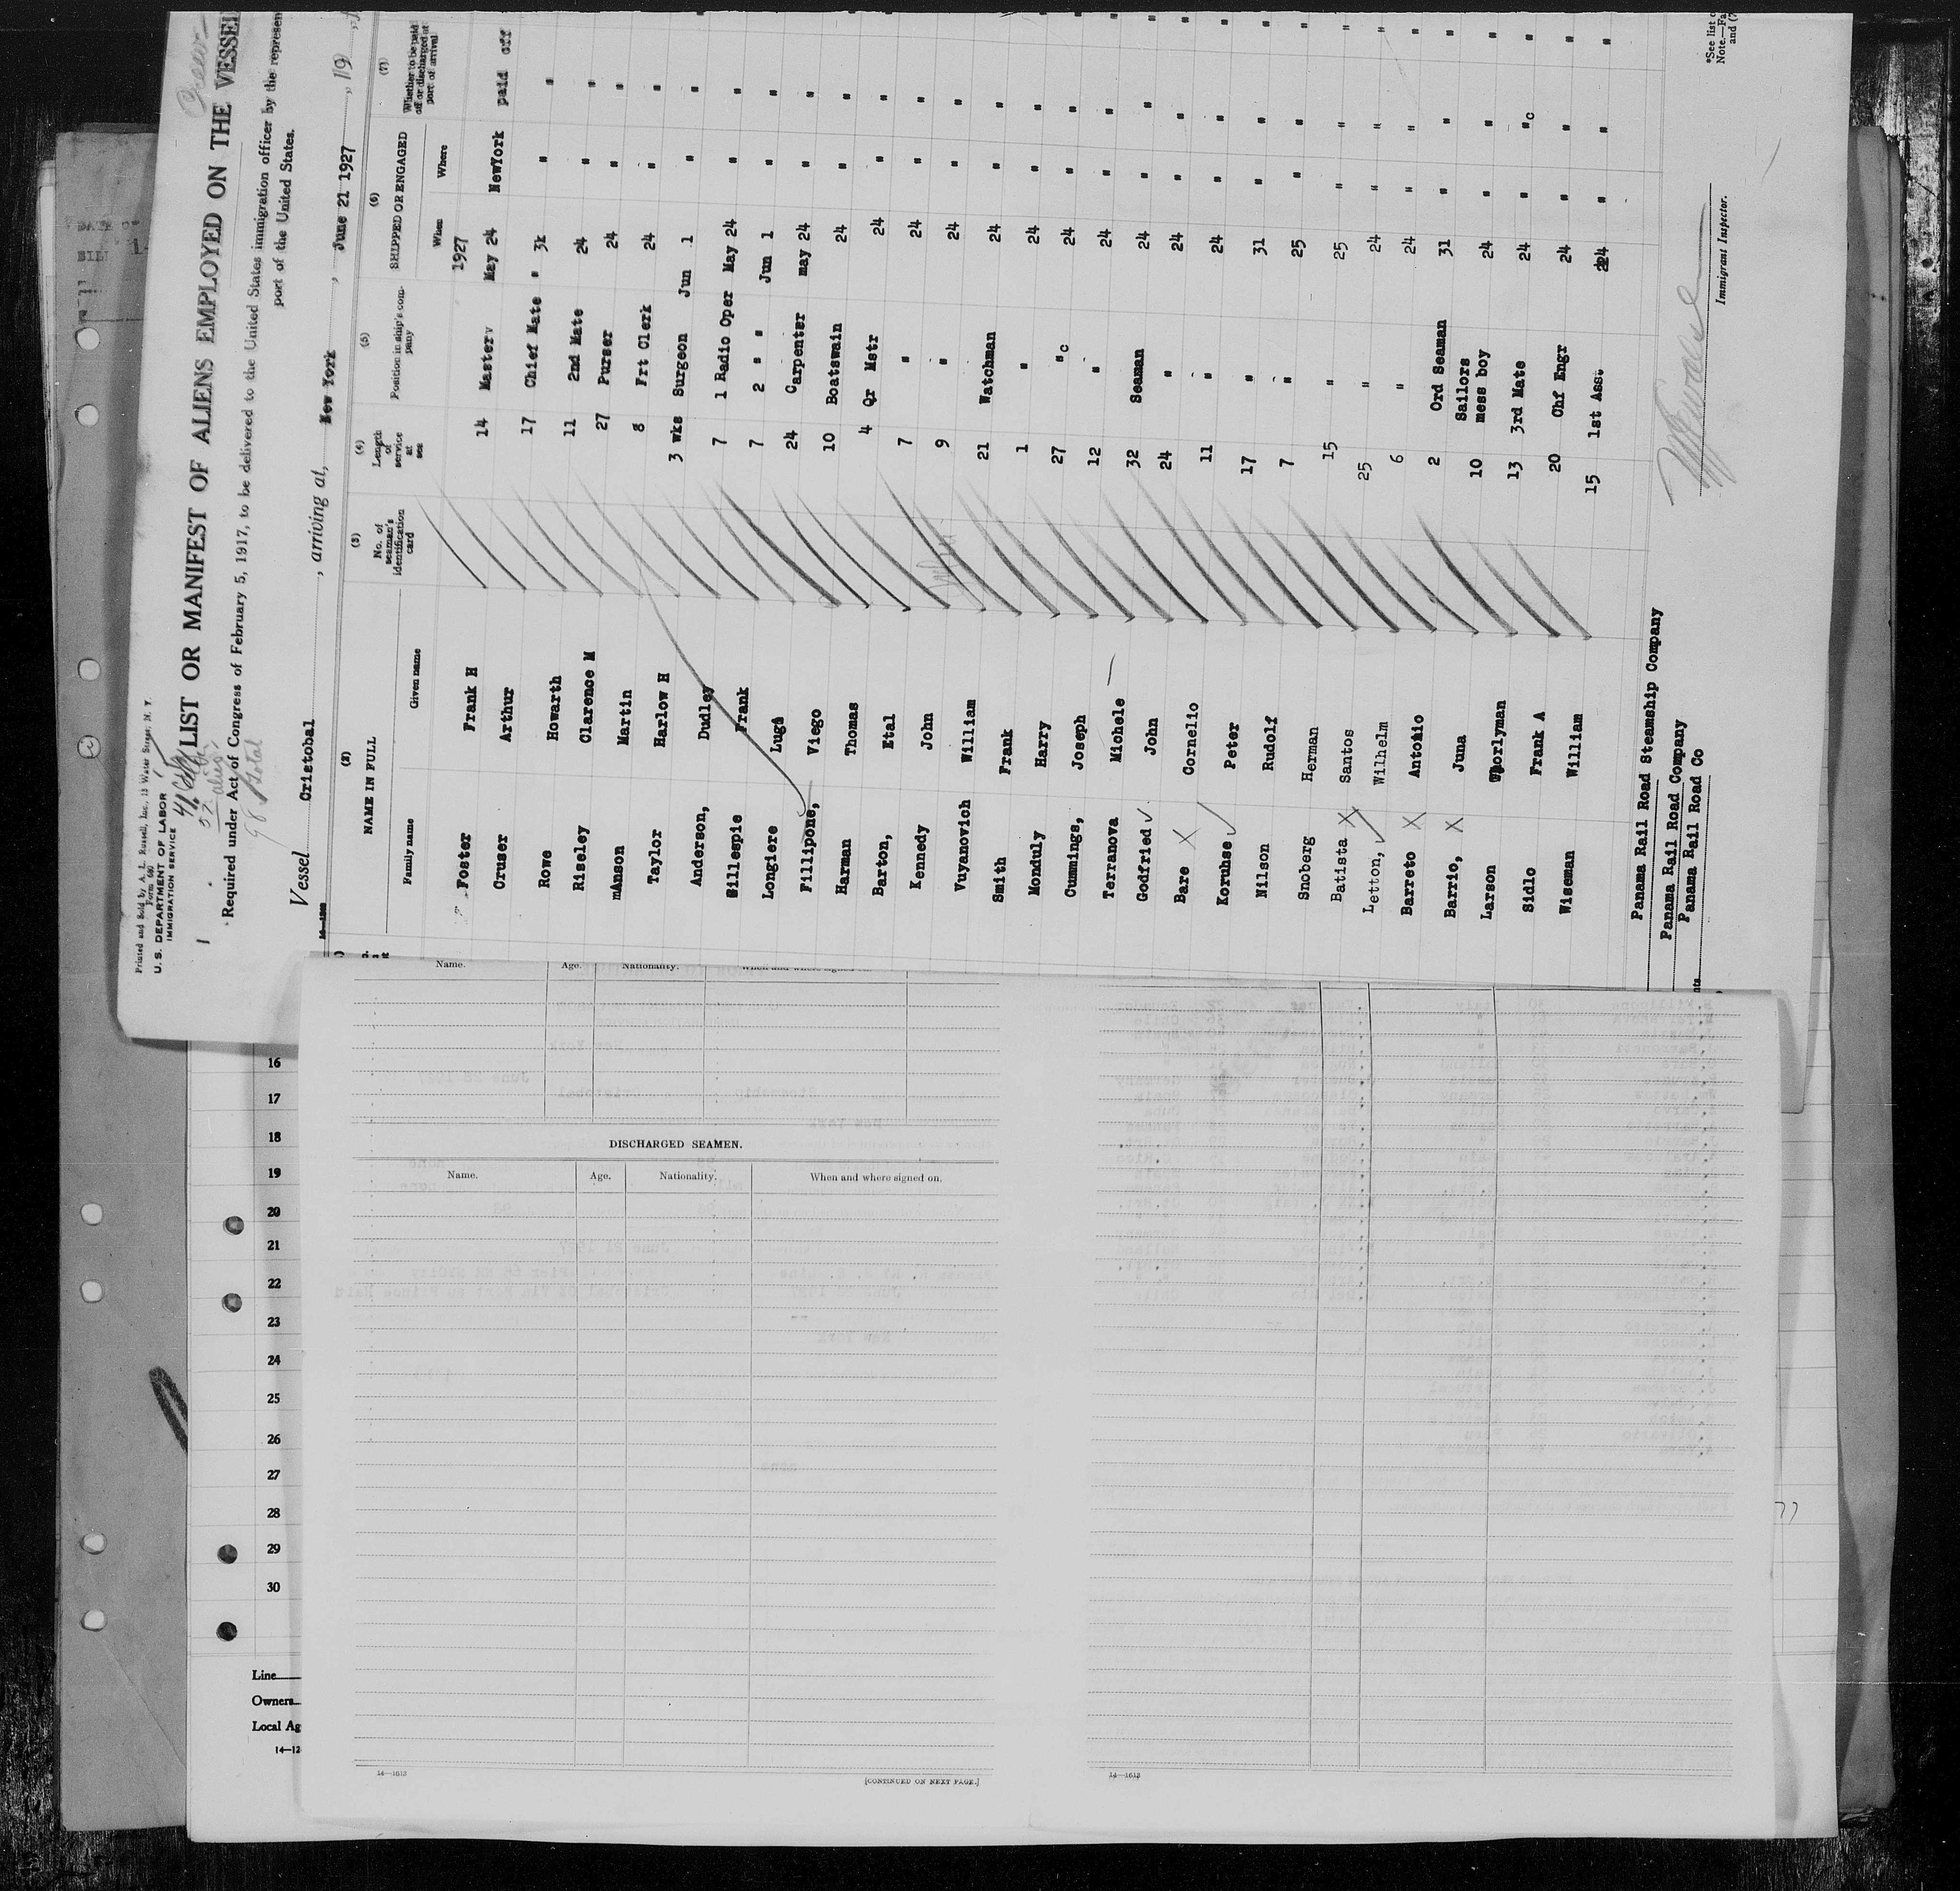 Printed and Sold by A. L. Russell, Inc. 13 Water Street N. Y.
Form 680
U. S. DEPARTMENT OF LABOR
IMMIGRATION SERVICE
1
98 total
LIST OR MANIFEST OF ALIENS EMPLOYED ON THE VESSEL
Required under Act of Congress of February 5, 1917, to be delivered to the United States immigration officer by the represen
port of the United States.
Vessel Cristobal , arriving at, New York , June 21 1927 , 19
(2) (3) (4) (5) (6) (7)
NAME IN FULL No. of seaman's identification card Length of service at sea Position in ship's company SHIPPED OR ENGAGED Whether to be paid off or discharged at port of arrival
Family name Given name When Where
1927
Foster Frank H 14 Master May 24 NewYork paid off
Cruser Arthur 17 Chief Mate " 3k " "
Rowe Howarth 11 2nd Mate 24 " "
Riseley Clarence M 27 Purser 24 " "
mAnson Martin 8 Frt Clerk 24 " "
Taylor Harlow H 3 wks Surgeon Jun 1 " "
Anderson, Dudley 7 1 Radio Oper May 24 " "
Gillespie Frank 7 2 " " Jun 1 " "
Longiere Luge 24 Carpenter may 24 " "
Fillipone, Viego 10 Boatswain 24 " "
Harman Thomas 4 Qr Mstr 24 " "
Barton, Etal 7 " 24 " "
Kennedy John 9 " 24 " "
Vuyanovich William 21 Watchman 24 " "
Smith Frank 1 " 24 " "
Monduly Harry 27 "c 24 " "
Cummings, Joseph 12 " 24 " "
Terranova Michele 32 Seaman 24 " "
Godfried John 24 " 24 " "
Bare Cornelio 11 " 24 " "
Koruhse Peter 17 " 31 " "
Nilson Rudolf 7 " 25 " "
Snoberg Herman 15 " 25 " "
Batista Santos 25 " 24 " "
Letton, Wilhelm 6 " 24 " "
Barreto Antonio 2 Ord Seaman 31 " "
Barrio, Juna 10 Sailors mess boy 24 " "
Larson Thorlyman 13 3rd Mate 24 " "c
Sidlo Frank A 20 Chf Engr 24 " "
Wiseman William 15 1st Asst 24 " "
Panama Rail Road Steamship Company
Panama Rail Road Company
Panama Rail Road Co
Immigrant Inspector.
*See list o
Note.—Fa
and (7
Name. Age. Nationality. When and where signed on.
DISCHARGED SEAMEN.
Name. Age. Nationality. When and where signed on.
14—1613
[CONTINUED ON NEXT PAGE.]
14—1613
16
17
18
19
20
21
22
23
24
25
26
27
28
29
30
Line
Owners
Local Ag
14—12